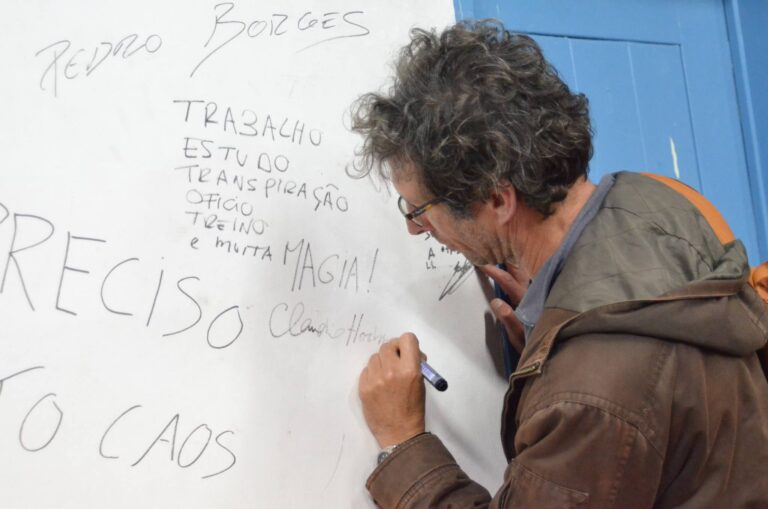 PEDRO BORGES
TRABALHO
ESTUDO
TRANSPIRAÇÃO
OFICIO
TREINO
e muita MAGIA!
PRECISO
Claudio
TO CAOS